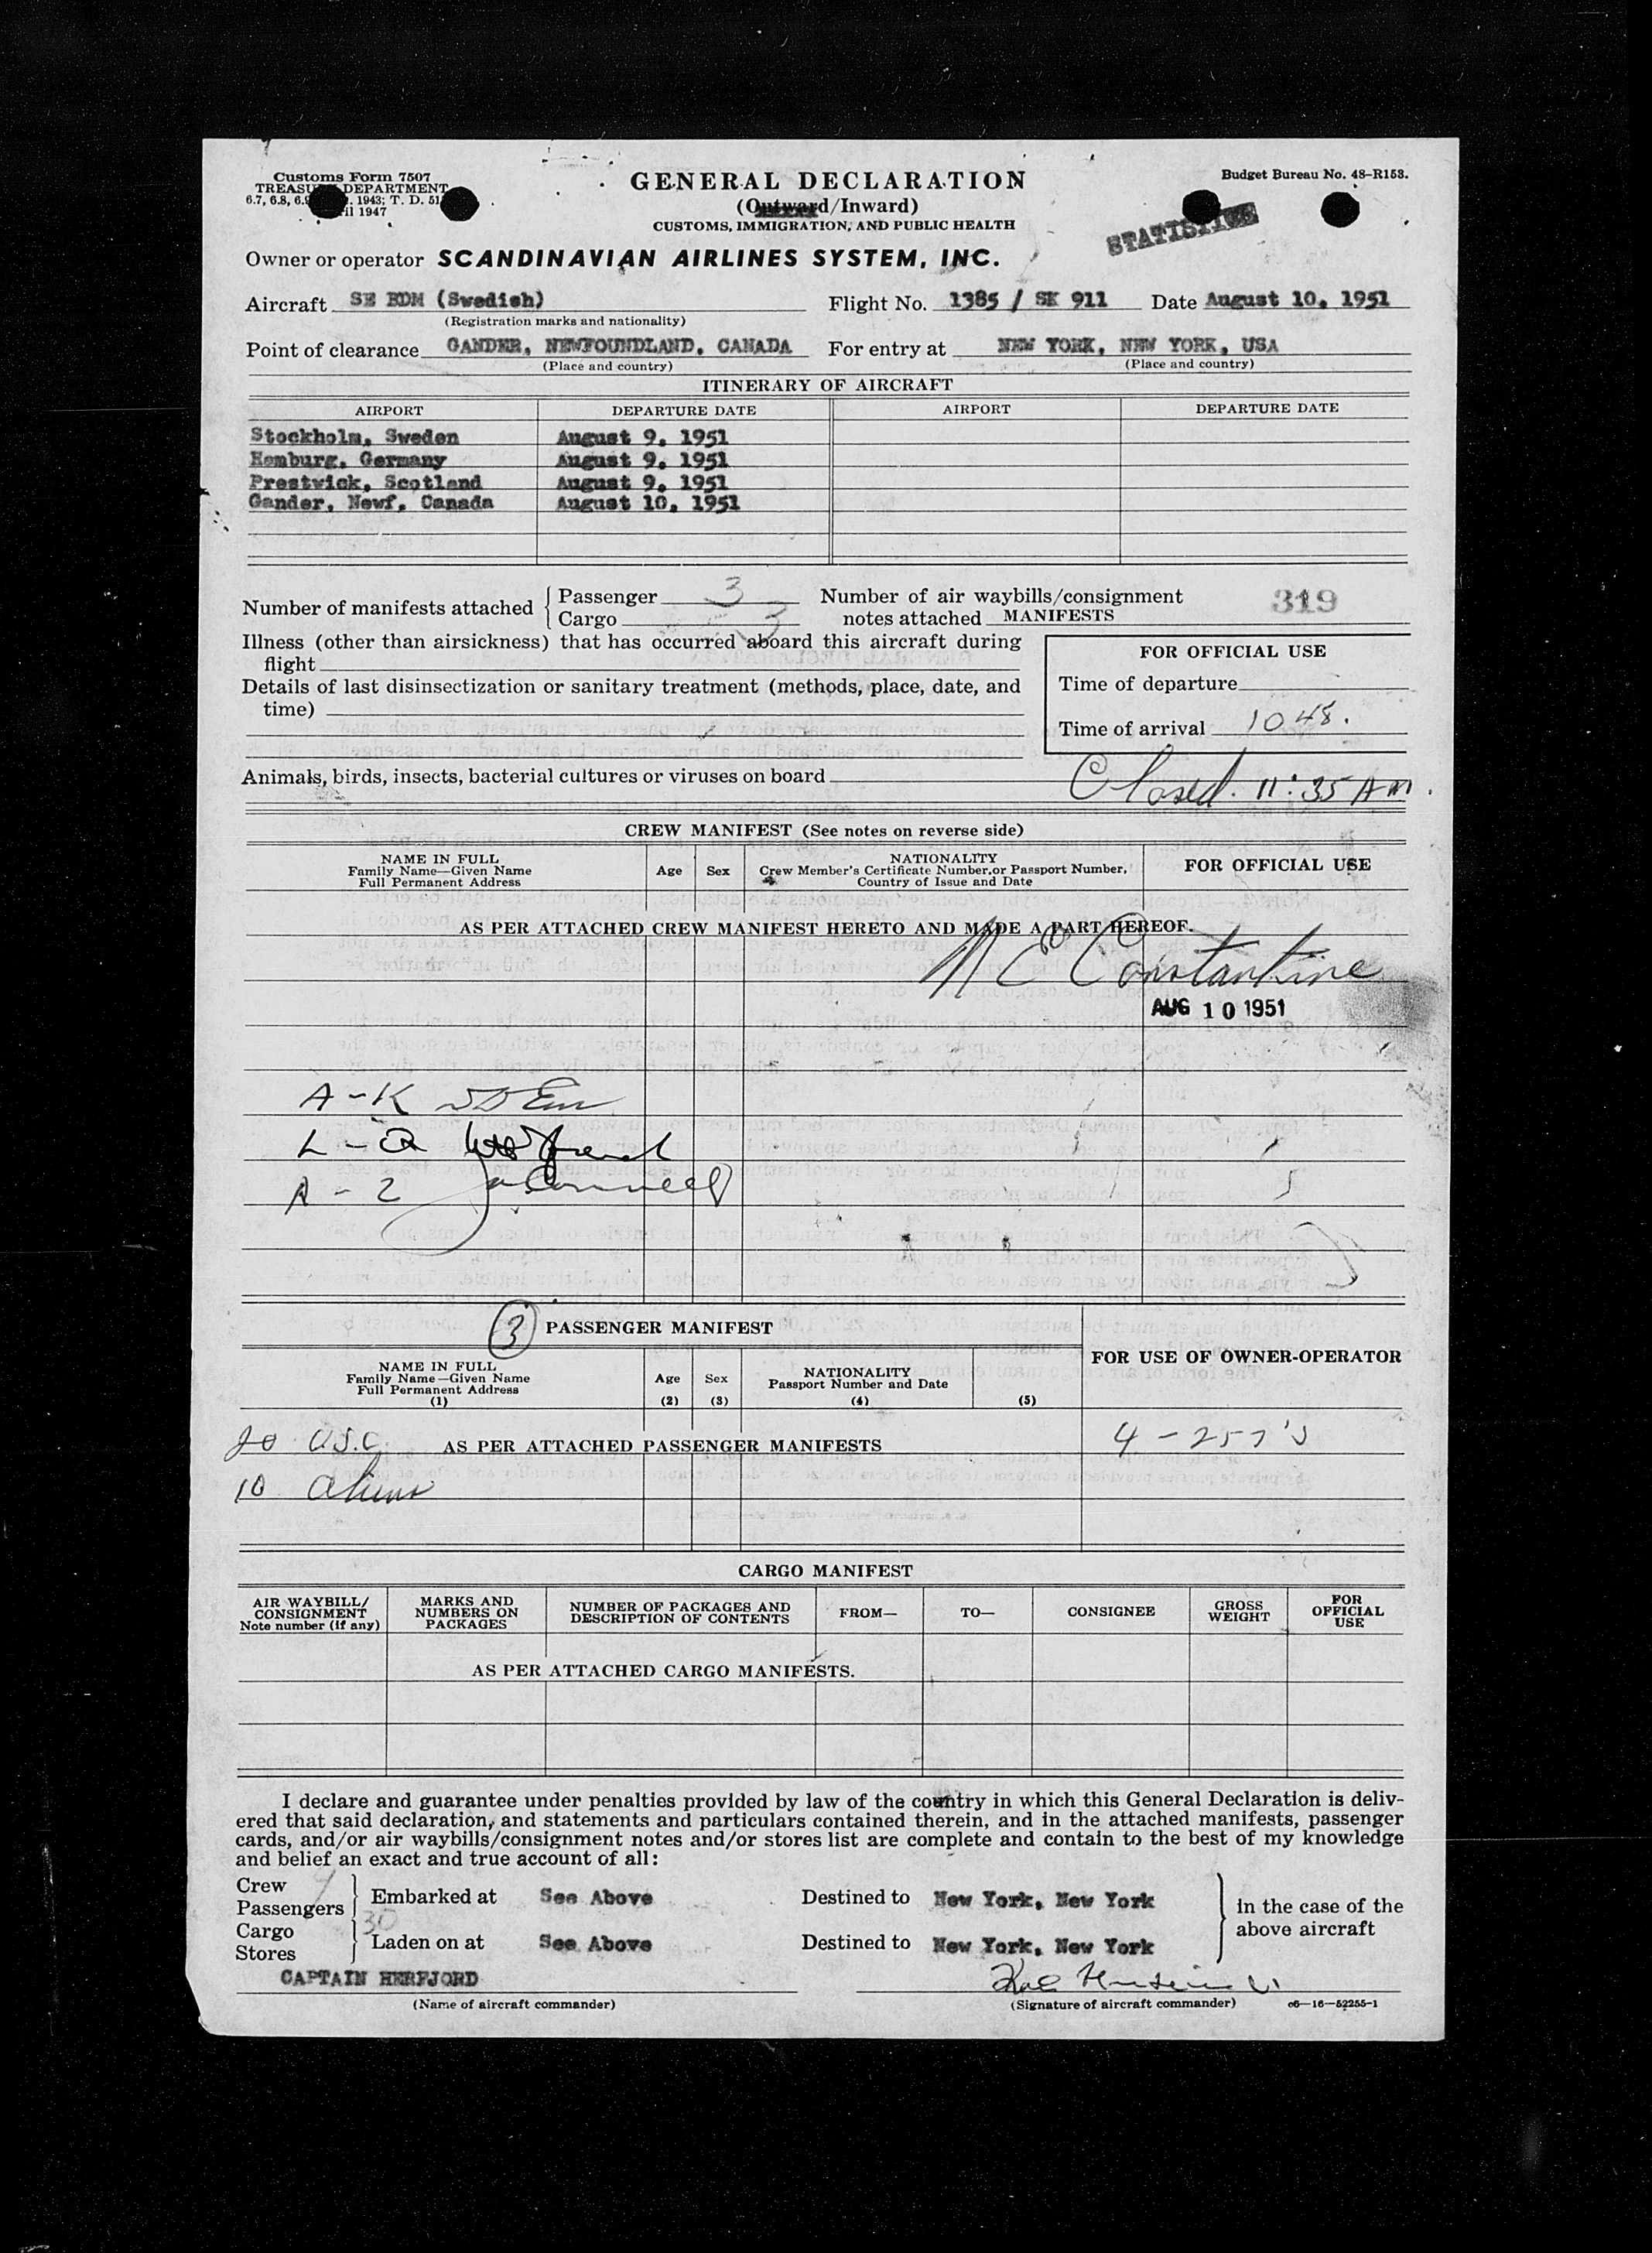 Customs Form 7507
TREASU DEPARTMENT
6.7, 6.8, 6.9 1943; T. D. 51
il 1947
GENERAL DECLARATION
(Outward/Inward)
CUSTOMS, IMMIGRATION, AND PUBLIC HEALTH
Budget Bureau No. 48-R153.
STATISTICS
Owner or operator SCANDINAVIAN AIRLINES SYSTEM, INC.
Aircraft SE BDM (Swedish) Flight No. 1385 / SK 911 Date August 10, 1951
(Registration marks and nationality)
Point of clearance GANDER, NEWFOUNDLAND, CANADA For entry at NEW YORK, NEW YORK, USA
(Place and country) (Place and country)
ITINERARY OF AIRCRAFT
AIRPORT DEPARTURE DATE AIRPORT DEPARTURE DATE
Stockholm, Sweden August 9, 1951
Hamburg, Germany August 9, 1951
Prestwick, Scotland August 9, 1951
Gander, Newf, Canada August 10, 1951
Number of manifests attached Passenger 3 Number of air waybills/consignment 319
Cargo 3 notes attached MANIFESTS
Illness (other than airsickness) that has occurred aboard this aircraft during
flight
FOR OFFICIAL USE
Details of last disinsectization or sanitary treatment (methods, place, date, and
time)
Time of departure
Time of arrival 1048.
Animals, birds, insects, bacterial cultures or viruses on board
Closed. 11:35 AM.
CREW MANIFEST (See notes on reverse side)
NAME IN FULL
Family Name—Given Name
Full Permanent Address
Age Sex
NATIONALITY
Crew Member's Certificate Number, or Passport Number,
Country of Issue and Date
FOR OFFICIAL USE
AS PER ATTACHED CREW MANIFEST HERETO AND MADE A PART HEREOF.
N C Constantine
AUG 10 1951
A-K
L-Q
R-Z
3 PASSENGER MANIFEST
FOR USE OF OWNER-OPERATOR
NAME IN FULL
Family Name—Given Name
Full Permanent Address
(1)
Age
(2)
Sex
(3)
NATIONALITY
Passport Number and Date
(4)
(5)
20 U.S.C. AS PER ATTACHED PASSENGER MANIFESTS 4 - 257's
10 Aliens
CARGO MANIFEST
AIR WAYBILL/
CONSIGNMENT
Note number (if any)
MARKS AND
NUMBERS ON
PACKAGES
NUMBER OF PACKAGES AND
DESCRIPTION OF CONTENTS
FROM—
TO—
CONSIGNEE
GROSS
WEIGHT
FOR
OFFICIAL
USE
AS PER ATTACHED CARGO MANIFESTS.
I declare and guarantee under penalties provided by law of the country in which this General Declaration is deliv-
ered that said declaration, and statements and particulars contained therein, and in the attached manifests, passenger
cards, and/or air waybills/consignment notes and/or stores list are complete and contain to the best of my knowledge
and belief an exact and true account of all:
Crew 7
Passengers 30
Embarked at See Above Destined to New York, New York
Cargo
Stores
Laden on at See Above Destined to New York, New York
in the case of the
above aircraft
CAPTAIN HERFJORD
(Name of aircraft commander) (Signature of aircraft commander) c6—16—52255-1